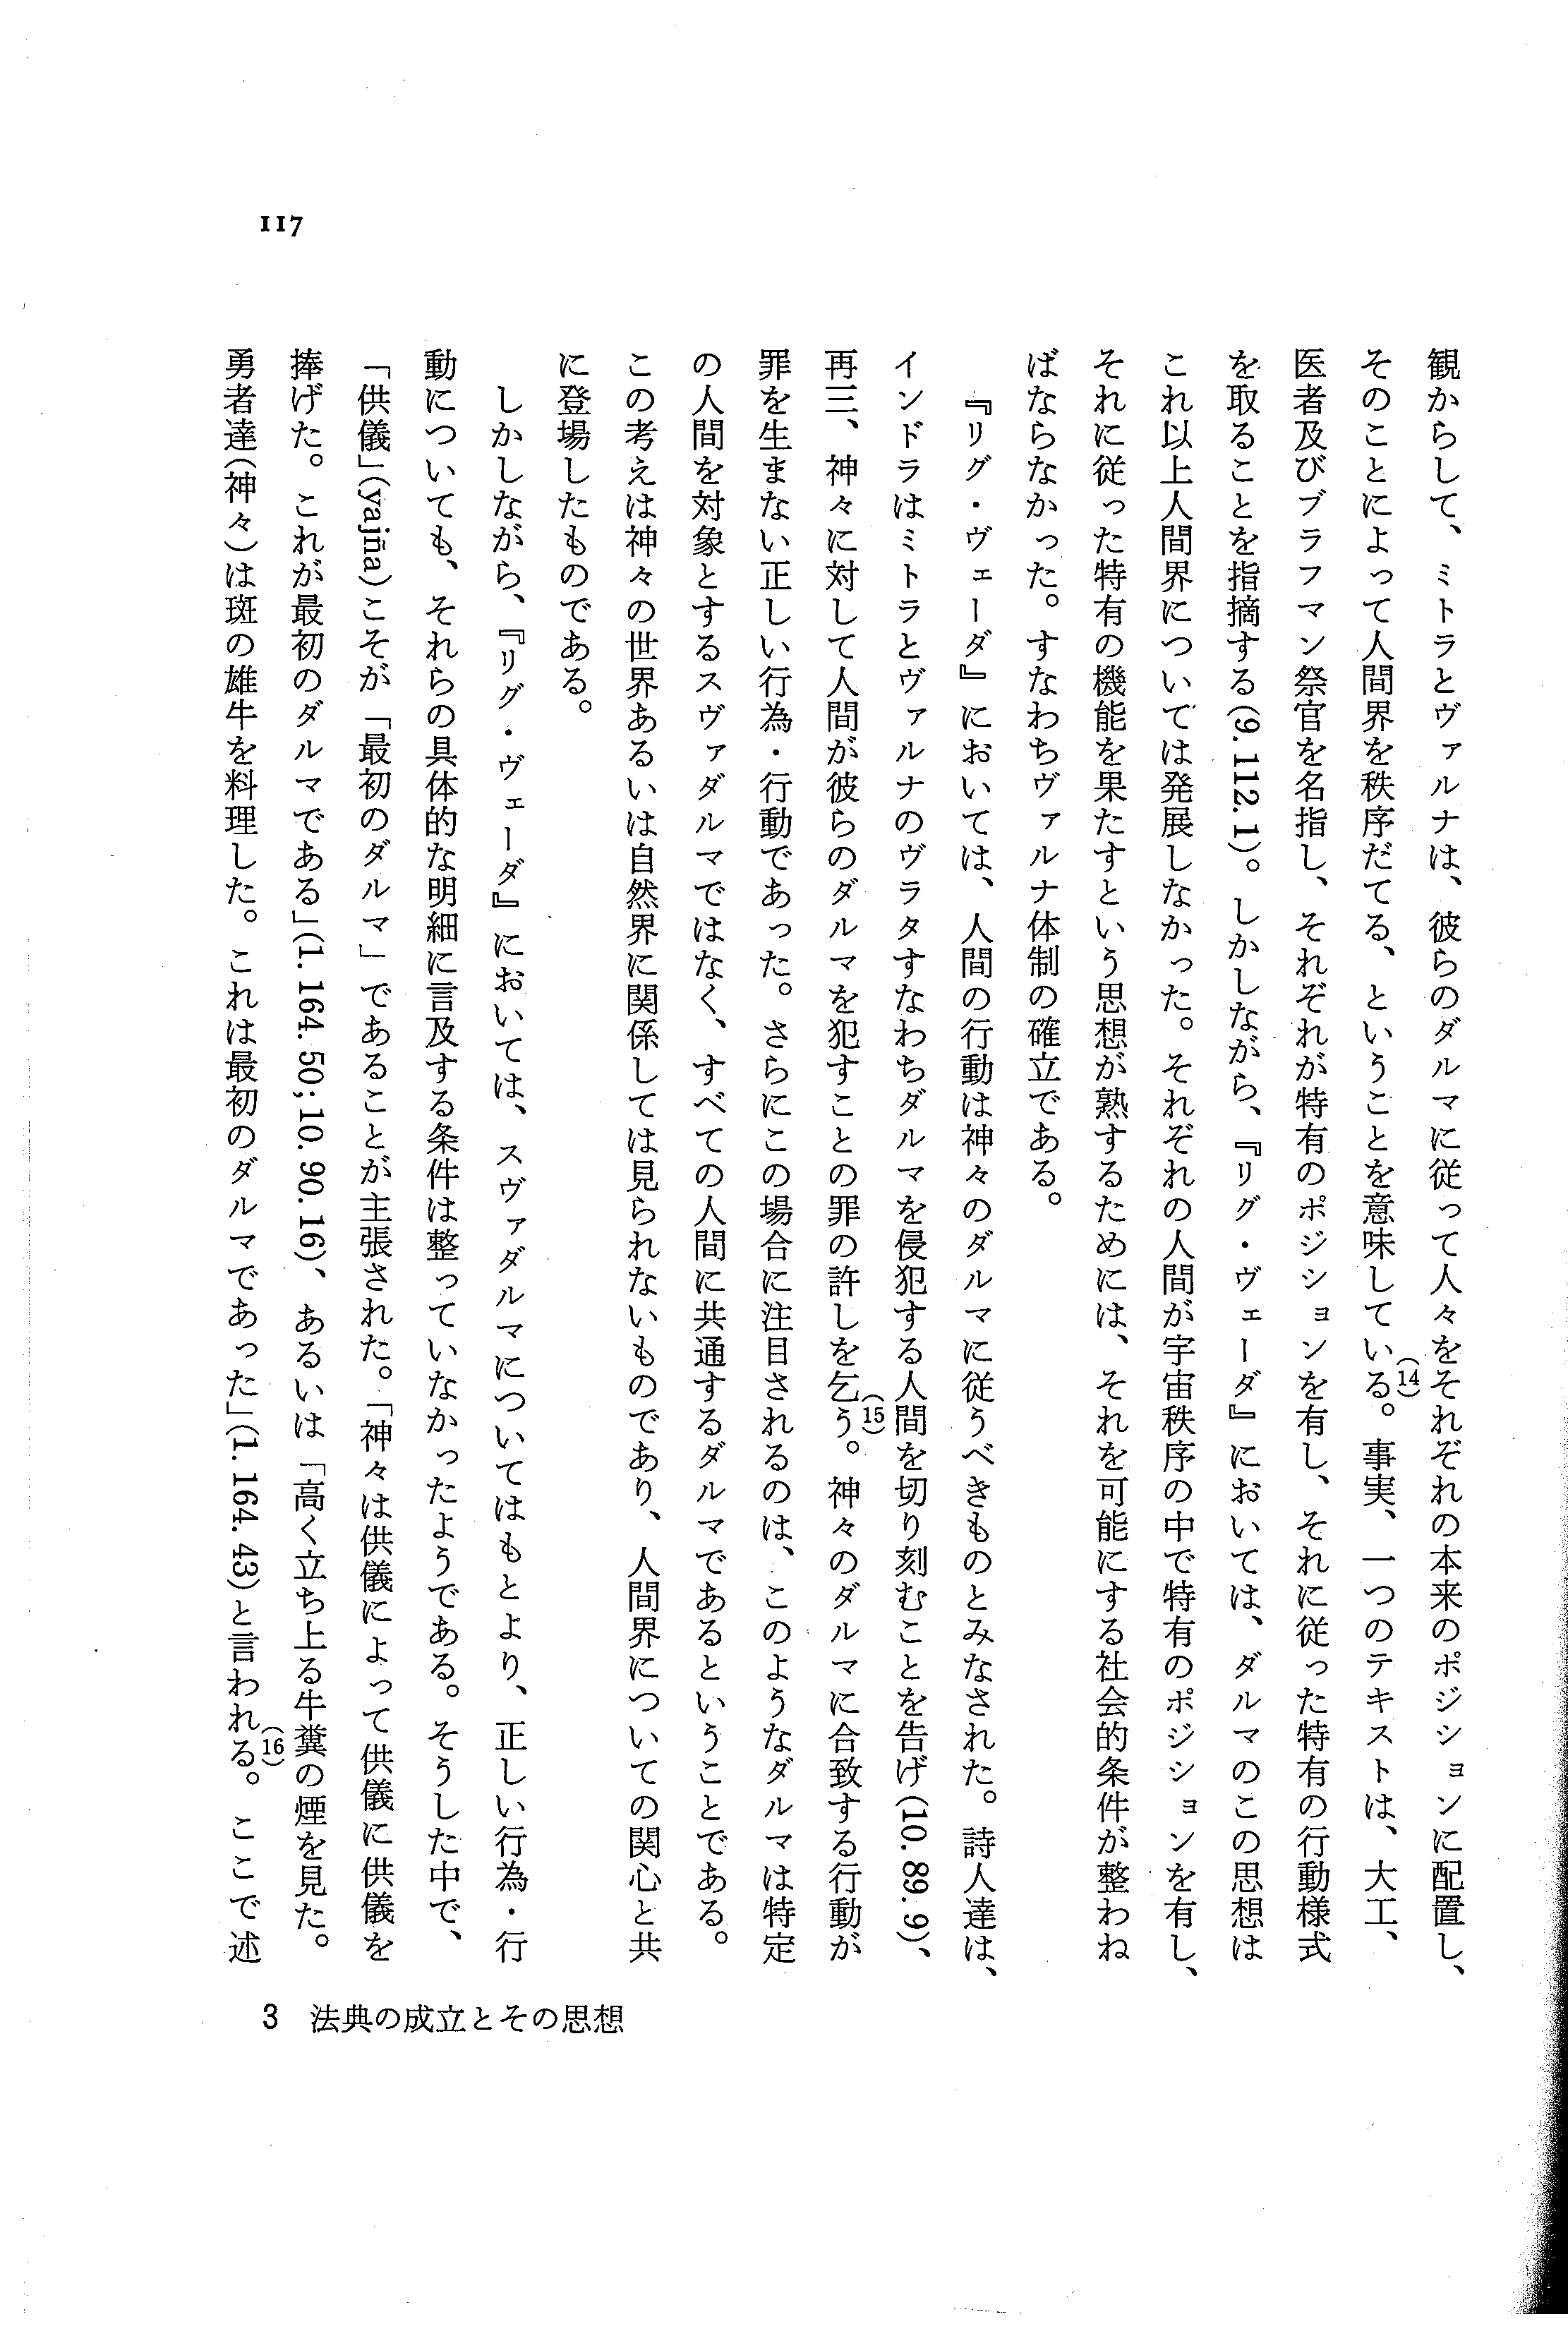 観からして、ミトラとヴァルナは、彼らのダルマに従って人々をそれぞれの本来のポジションに配置し、
そのことによって人間界を秩序だてる、ということを意味している(14)。事実、一つのテキストは、大工、
医者及びブラフマン祭官を名指し、それぞれが特有のポジションを有し、それに従った特有の行動様式
を取ることを指摘する(9. 112. 1)。しかしながら、『リグ・ヴェーダ』においては、ダルマのこの思想は
これ以上人間界については発展しなかった。それぞれの人間が宇宙秩序の中で特有のポジションを有し、
それに従った特有の機能を果たすという思想が熟するためには、それを可能にする社会的条件が整わね
ばならなかった。すなわちヴァルナ体制の確立である。
『リグ・ヴェーダ』においては、人間の行動は神々のダルマに従うべきものとみなされた。詩人達は、
インドラはミトラとヴァルナのヴラタすなわちダルマを侵犯する人間を切り刻むことを告げ(10. 89. 9)、
再三、神々に対して人間が彼らのダルマを犯すことの罪の許しを乞う(15)。神々のダルマに合致する行動が
罪を生まない正しい行為・行動であった。さらにこの場合に注目されるのは、このようなダルマは特定
の人間を対象とするスヴァダルマではなく、すべての人間に共通するダルマであるということである。
この考えは神々の世界あるいは自然界に関係しては見られないものであり、人間界についての関心と共
に登場したものである。
しかしながら、『リグ・ヴェーダ』においては、スヴァダルマについてはもとより、正しい行為・行
動についても、それらの具体的な明細に言及する条件は整っていなかったようである。そうした中で、
「供儀」(yajña)こそが「最初のダルマ」であることが主張された。「神々は供儀によって供儀に供儀を
捧げた。これが最初のダルマである」(1. 164. 50; 10. 90. 16)、あるいは「高く立ち上る牛糞の煙を見た。
勇者達(神々)は斑の雄牛を料理した。これは最初のダルマであった」(1. 164. 43)と言われる(16)。ここで述
3 法典の成立とその思想
117